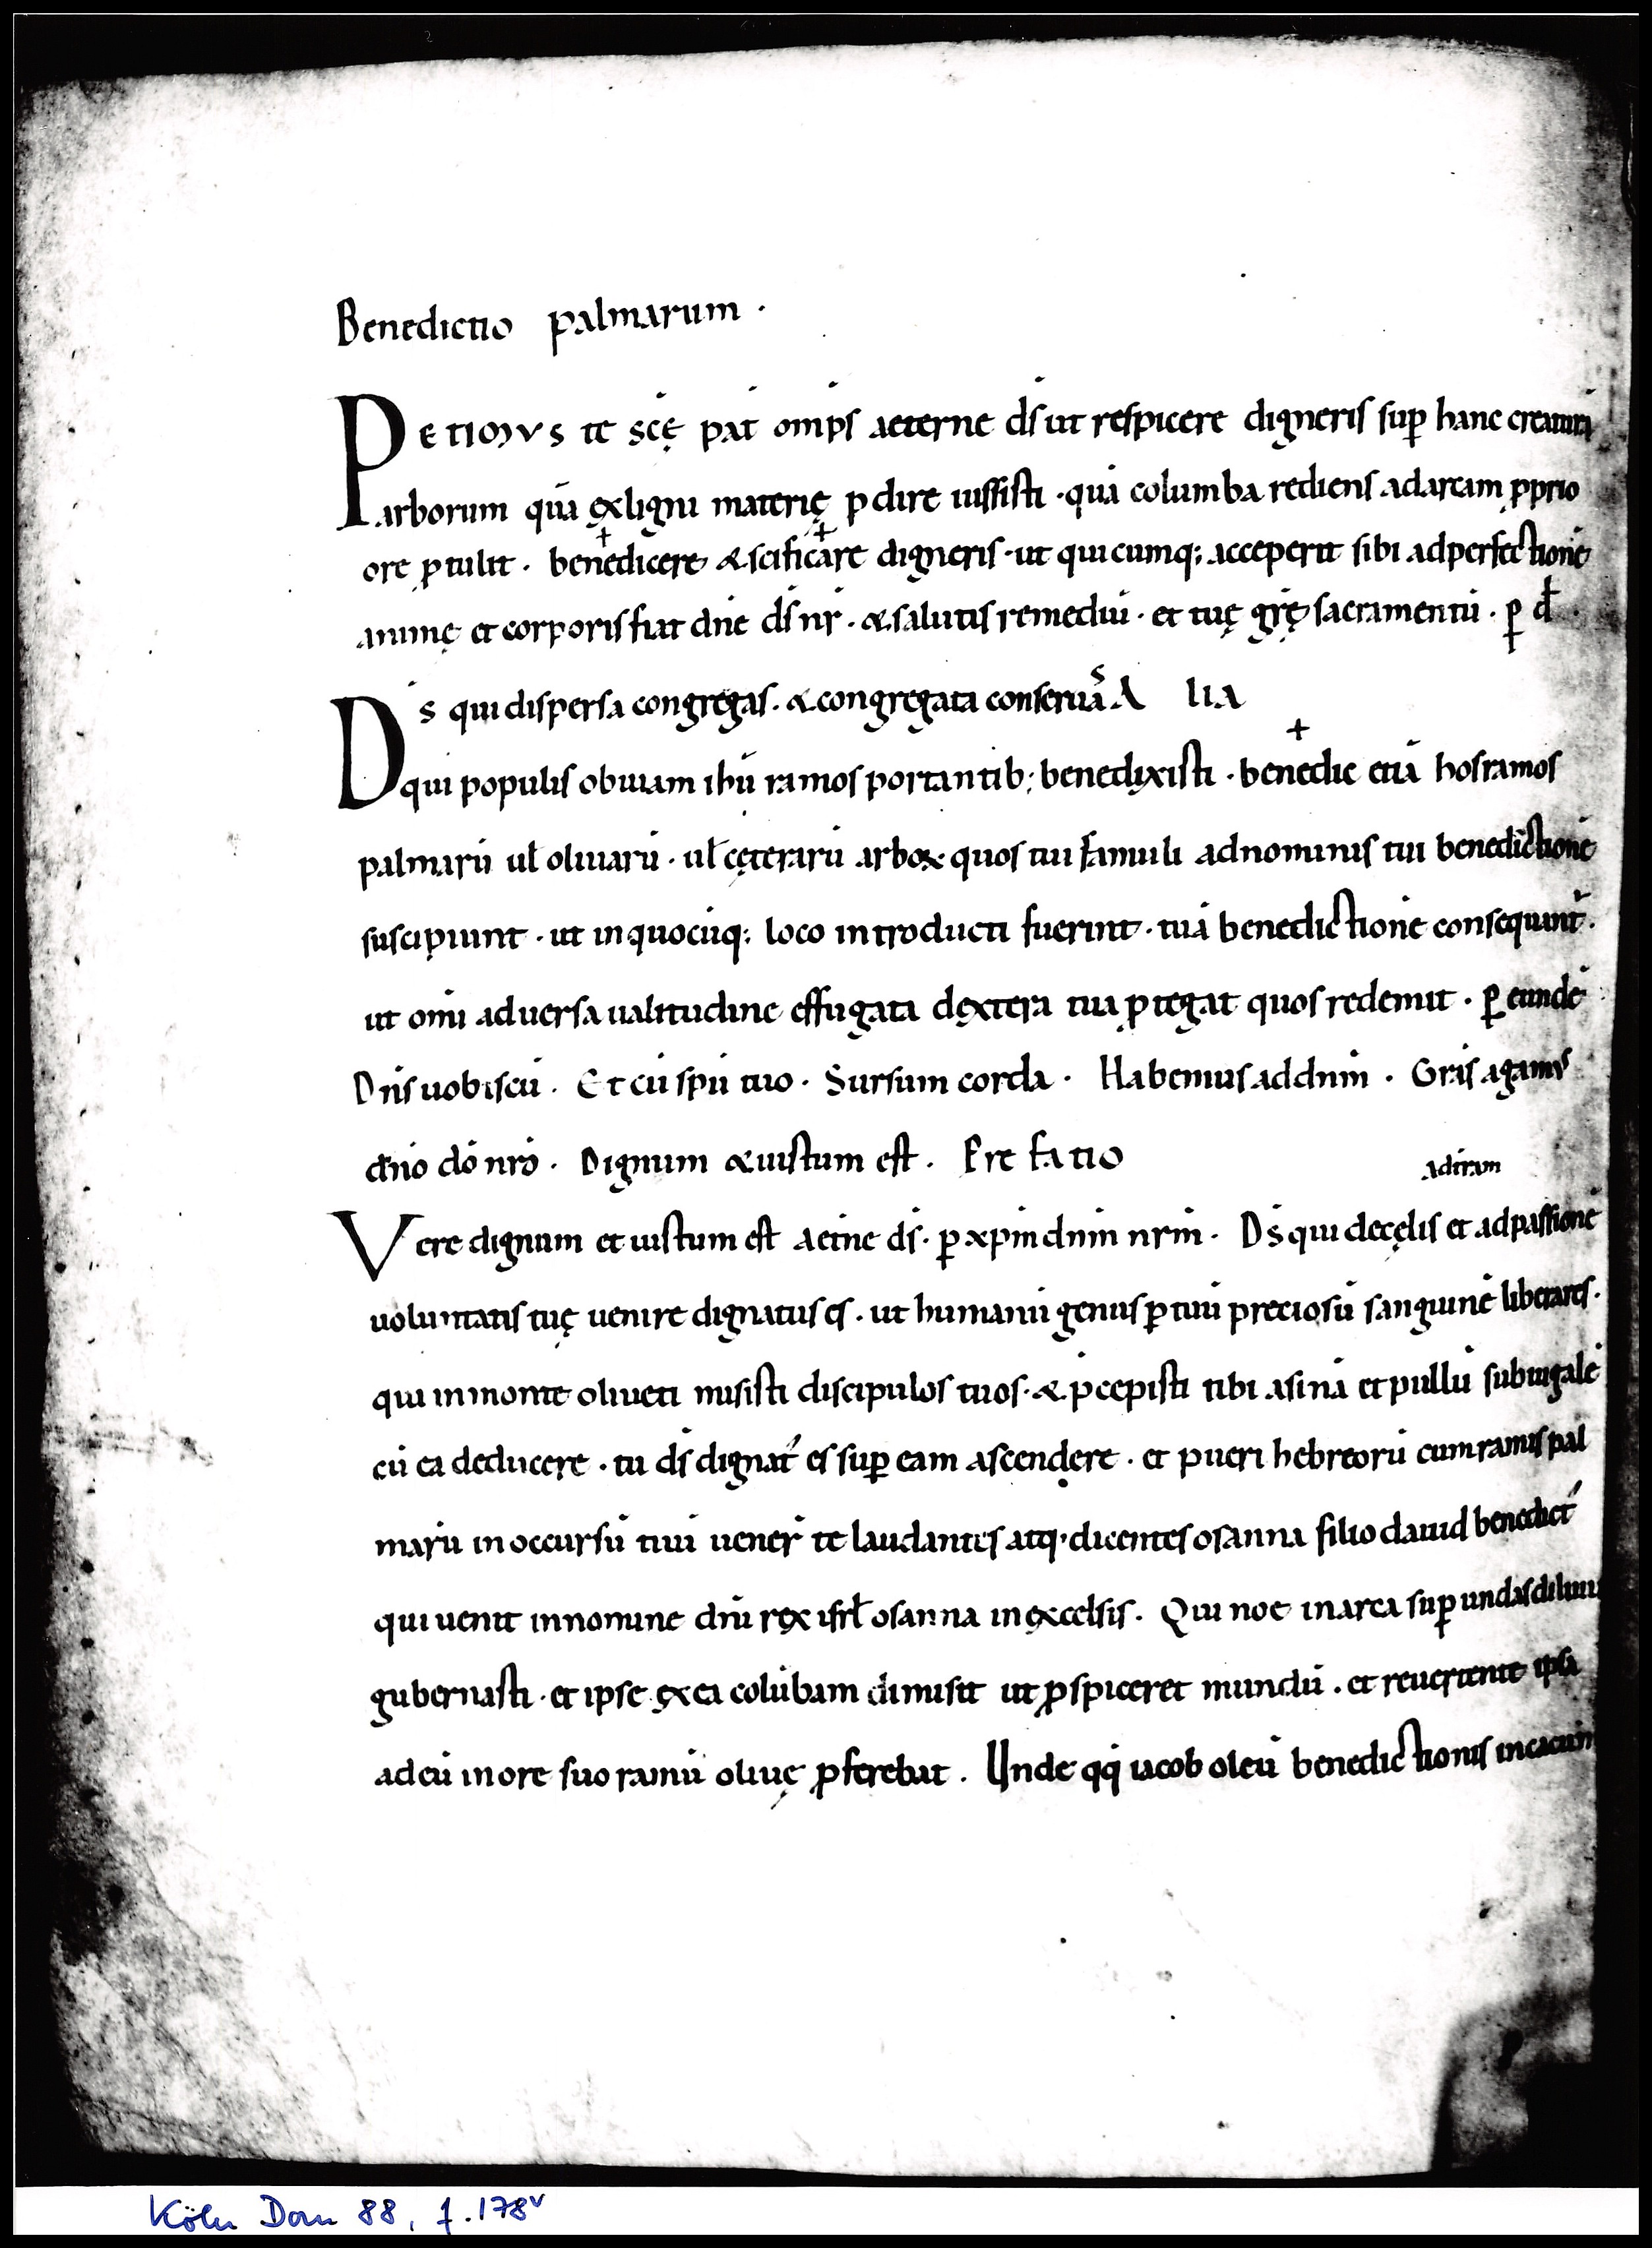 Benedictio palmarum ·
PETIMVS te scę̄ pat̄ omp̄s aeterne d̄s ut respicere digneris sup̄ hanc creaturā
arborum quā ex ligni materię p̄dire iussisti · quā columba rediens ad arcam ꝓprio
ore ꝓtulit · bene✝dicere & sc̄ifi✝care digneris · ut quicumq; acceperit sibi ad perfectionē
animę et corporis fiat dn̄e d̄s nr̄ · & salutis remediū · et tuę gr̄ę sacramentū · ꝑ d̄
D̄s qui dispersa congregas · & congregata conseruas̄ ALIA
qui populis obuiam ihū ramos portantib; benedixisti · bene✝dic etiā hos ramos
palmarū ul̄ oliuarū · ul̄ cęterarū arboꝝ quos tui famuli ad nominis tui benedictionē
suscipiunt · ut in quocūq; loco introducti fuerint · tuā benedictionē consequant̄ ·
ut om̄i aduersa ualitudine effugata dextera tua ꝓtegat quos redemit · ꝑ eundē
Dn̄s uobiscū · Et cū spū tuo · Sursum corda · Habemus ad dn̄m · Grās agam᾽
dn̄o dō nr̄o · Dignum & iustum est · Prefatio
ad tirum
Vere dignum et iustum est aet̄ne d̄s · ꝑ xp̄m dn̄m nr̄m · D̄s qui de cęlis et ad passionē
uoluntatis tuę uenire dignatus es · ut humanū genus ꝑ tuū preciosū sanguinē liberares ·
qui in monte oliueti misisti discipulos tuos · & p̄cepisti tibi asinā et pullū subiugalē
cū ea deducere · tu d̄s dignat᾽ es sup̄ eam ascendere · et pueri hebreorū cum ramis pal
marū in occursū tuū uener̄ te laudantes atq· dicentes osanna filio dauid benedict᾽
qui uenit in nomine dn̄i rex isrl̄ osanna in excelsis · Qui noe in arca sup̄ undas diluuii
gubernasti · et ipse ex ea colūbam dimisit ut ꝓspiceret mundū · et reuertente ipsa
ad eū in ore suo ramū oliuę ꝓferebat · Unde qq̄ iacob oleū benedictionis in cacum
Köln Dom 88, f. 178v